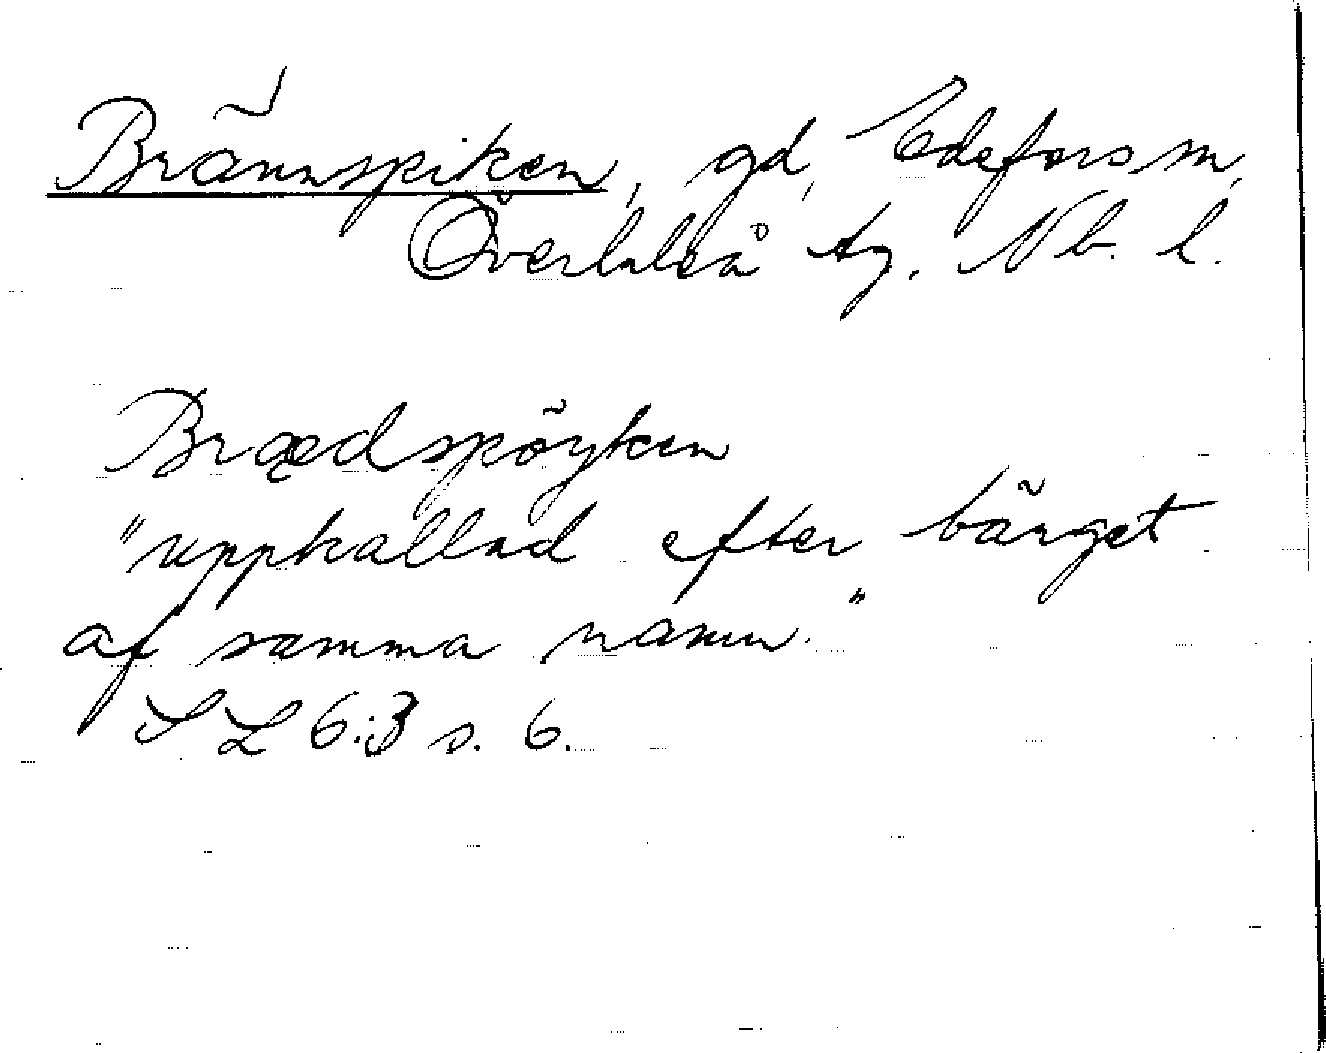 Brännspiken, gd, Edefors sn,
Överluleå tg. Nb. l.
Brædspöyken
"uppkallad efter bärget
af samma namn."
SL 6:3 s. 6.